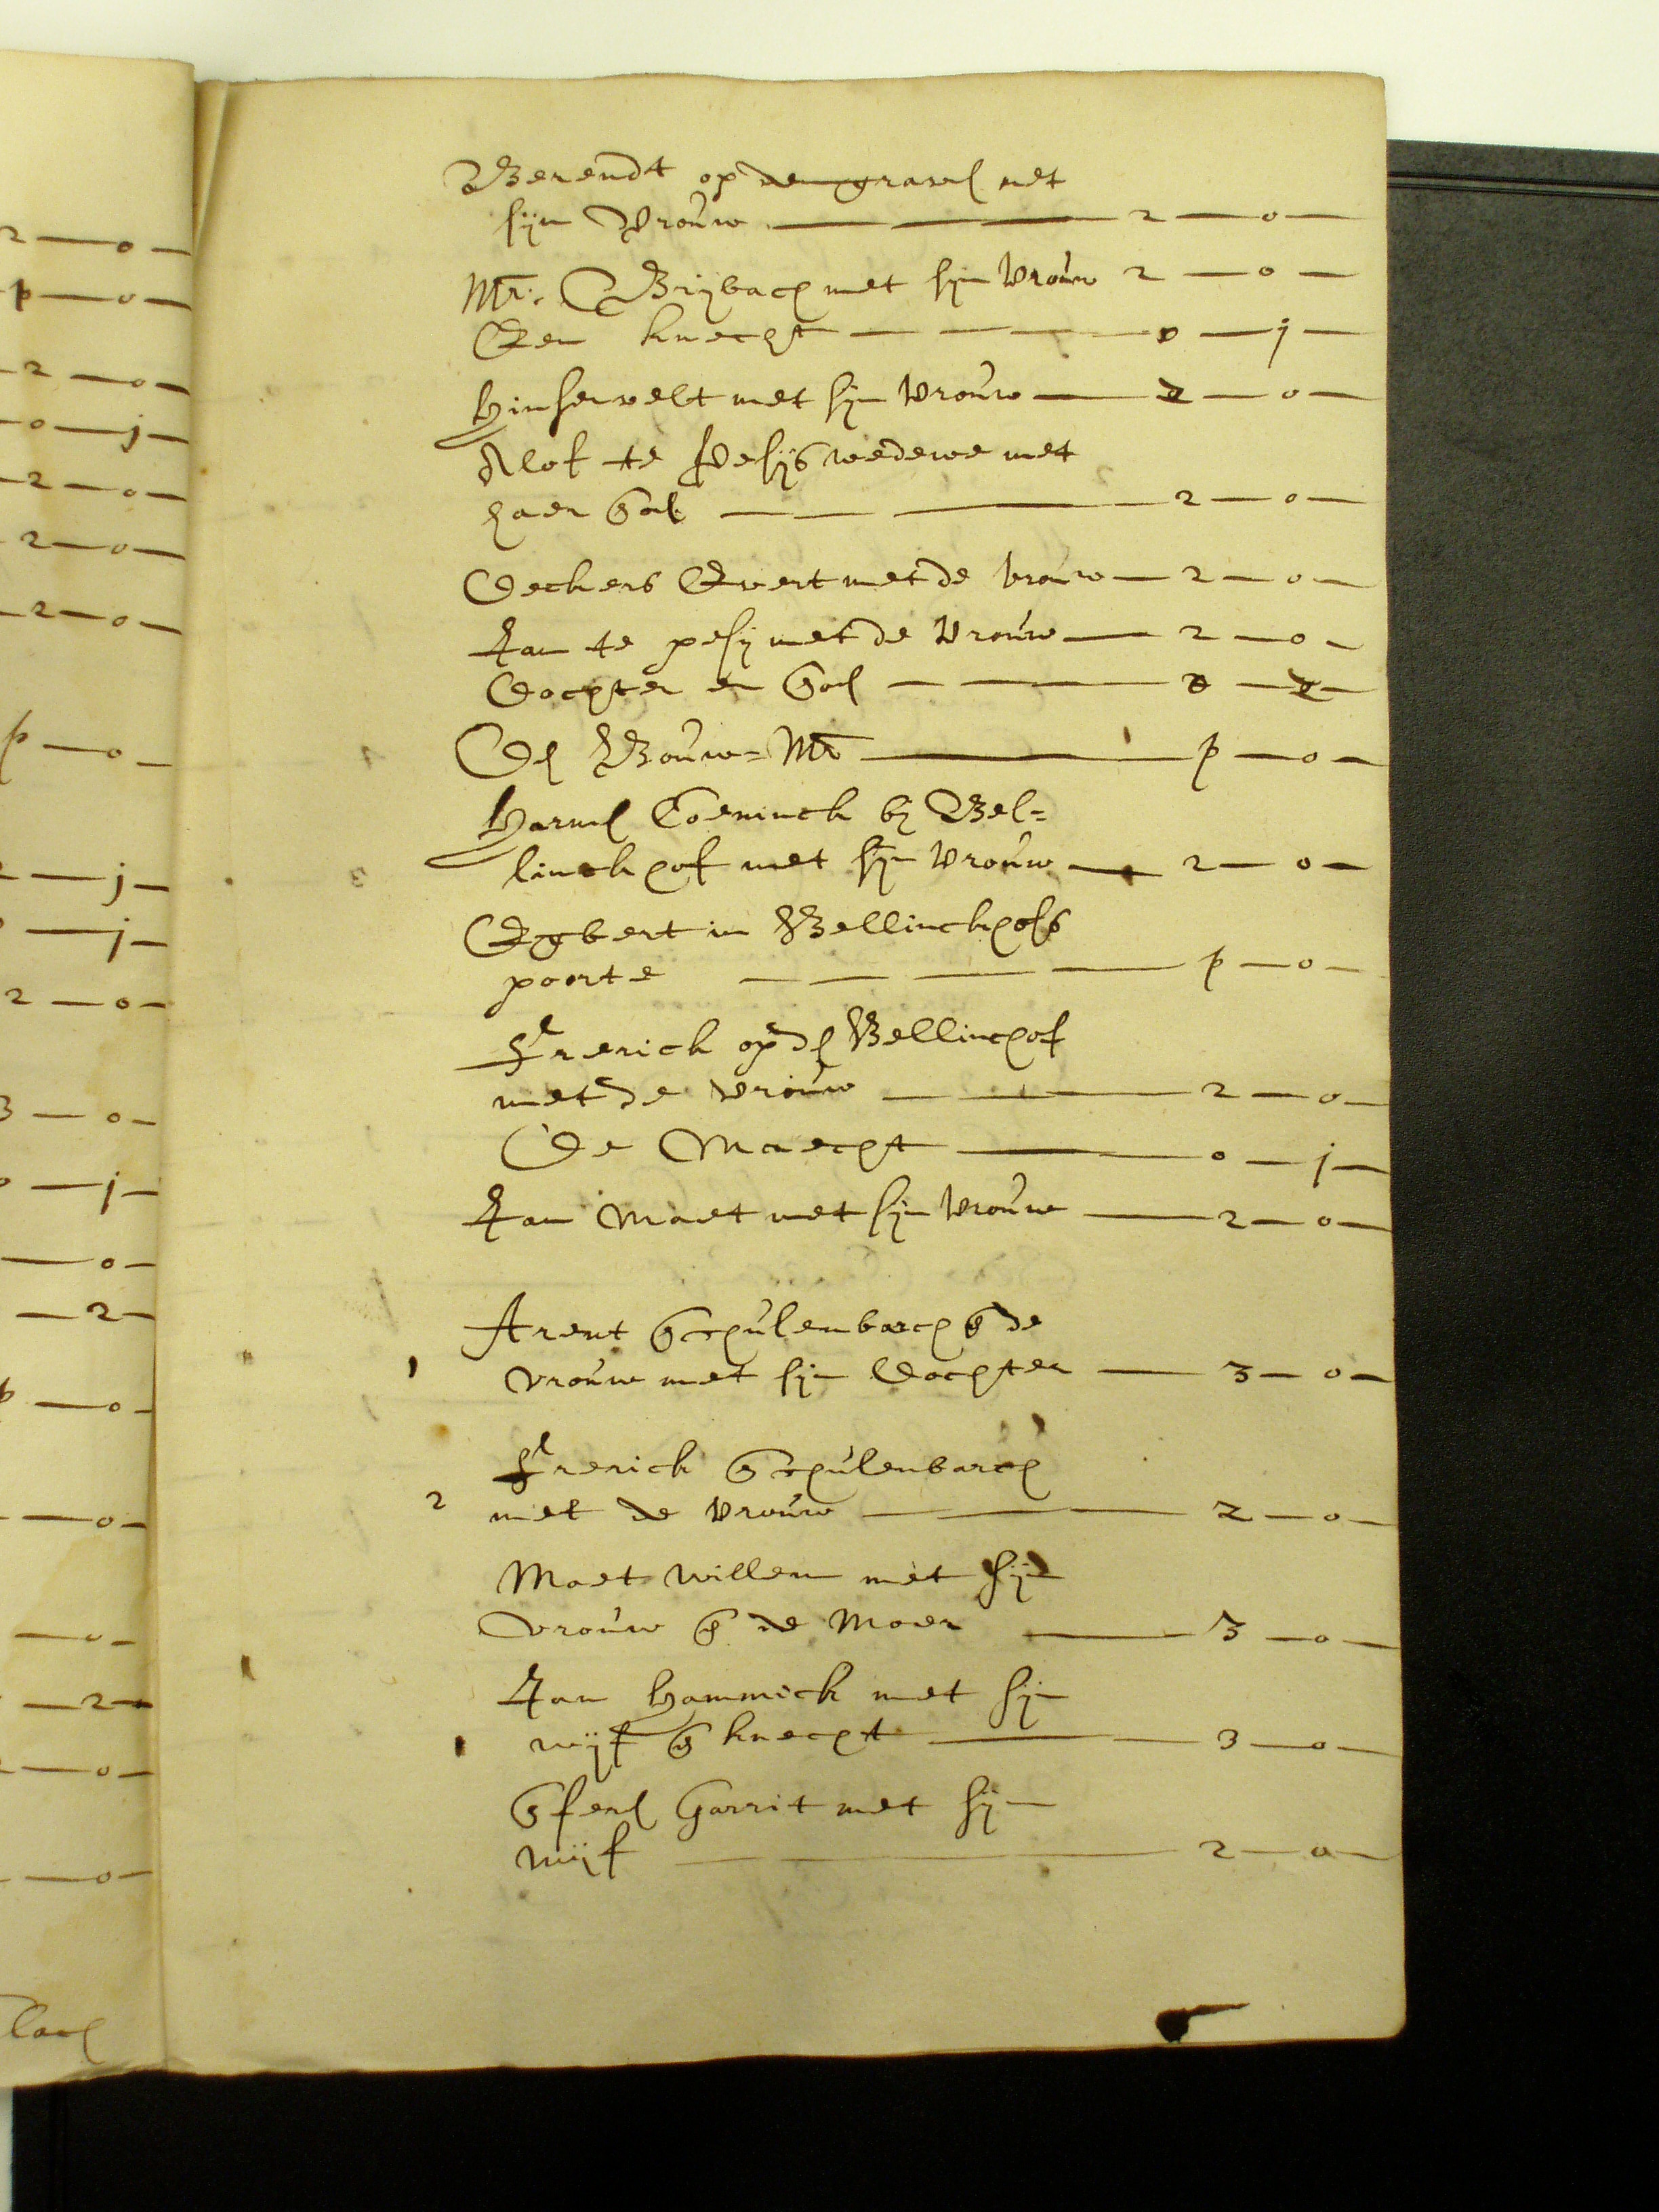 Berendt op den graven met
sijn Vrouw — 2 — 0 —
Mr. Brijbach met sijn Vrouw 2 — 0 —
Een knecht — 0 — j —
Hinsenvelt met sijn Vrouw — 2 — 0 —
Alof te Pesijs wedewe met
haer Son — 2 — 0 —
Deckers Evert met de vrouw — 2 — 0 —
Jan te pesij met de Vrouw — 2 — 0 —
Dochter en Son — 0 — 2 —
Den Bouw=Mr — p — 0 —
Harmen Coeninck bij Bel=
linckhof met sijn Vrouw — 2 — 0 —
Egbert in Bellinckhofs
poorte — p — 0 —
Frerick op den Bellinchof
met de vrouw — 2 — 0 —
De Maecht — 0 — j —
Jan Maet met sijn Vrouw — 2 — 0 —
Arent Schulenborch & de
1 vrouw met sijn Dochter — 3 — 0 —
Frerick Schulenbarch
2 met de Vrouw — 2 — 0 —
Maet willem met sijn
vrouw & de Moer — 3 — 0 —
Jan Hammick met sijn
1 wijf & knecht — 3 — 0 —
Garrit met sijn
wijf — 2 — 0 —
2 — 0 —
p — 0 —
2 — 0 —
0 — j —
2 — 0 —
2 — 0 —
2 — 0 —
p — 0 —
j —
j —
2 — 0 —
3 — 0 —
j —
0 —
2 —
0 —
0 —
0 —
2 —
0 —
0 —